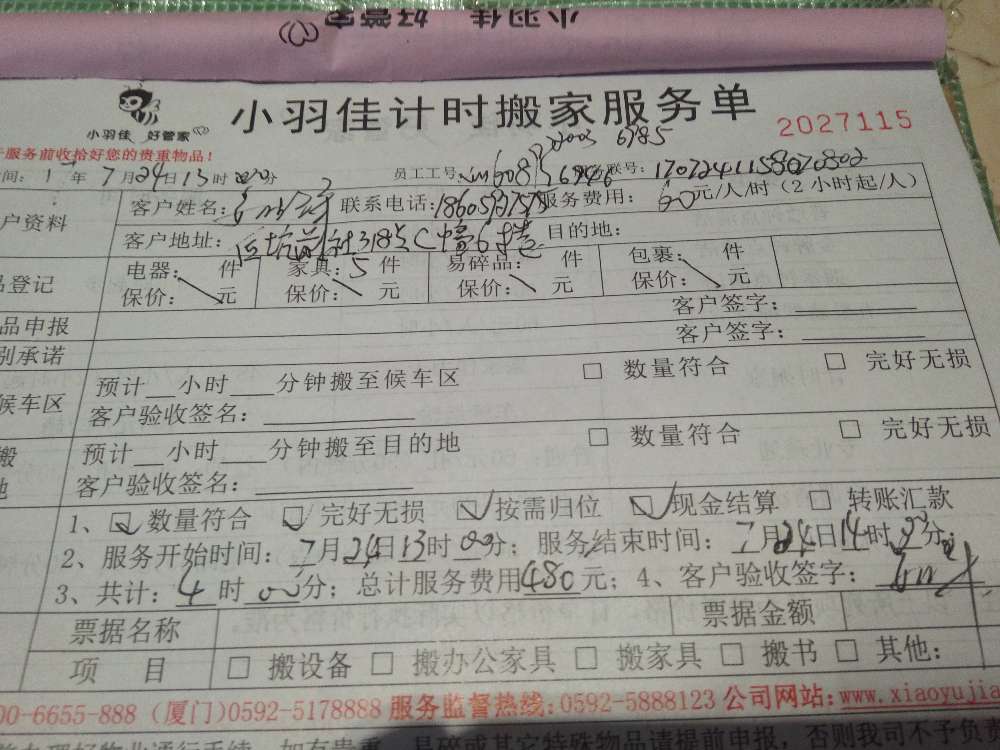 小羽佳 好管家
小羽佳 好管家
小羽佳计时搬家服务单
2027115
服务前收拾好您的贵重物品!
间: 17年7月24日13时00分 员工工号: 联号: 1707241158020802
6785
户资料 客户姓名: 联系电话: 服务费用: 60元/人/时(2小时起/人)
客户地址: 目的地:
品登记 电器: 件 家具: 5件 易碎品: 件 包裹: 件
保价: 元 保价: 元 保价: 元 保价: 元
品申报 客户签字:
别承诺 客户签字:
候车区 预计__小时___分钟搬至候车区 □ 数量符合 □ 完好无损
客户验收签名:
搬 预计__小时___分钟搬至目的地 □ 数量符合 □ 完好无损
地 客户验收签名:
1、☑数量符合 ☑完好无损 ☑按需归位 ☑现金结算 □ 转账汇款
2、服务开始时间: 7月24日13时00分; 服务结束时间: 7月24日14时00分;
3、共计: 4时00分; 总计服务费用480元; 4、客户验收签字:
票据名称 票据金额
项 目 □ 搬设备 □ 搬办公家具 □ 搬家具 □ 搬书 □ 其他:
00-6655-888 (厦门)0592-5178888 服务监督热线:0592-5888123 公司网站:www.xiaoyujia
如有贵重、易碎或其它特殊物品请提前申报,否则我司不予负责